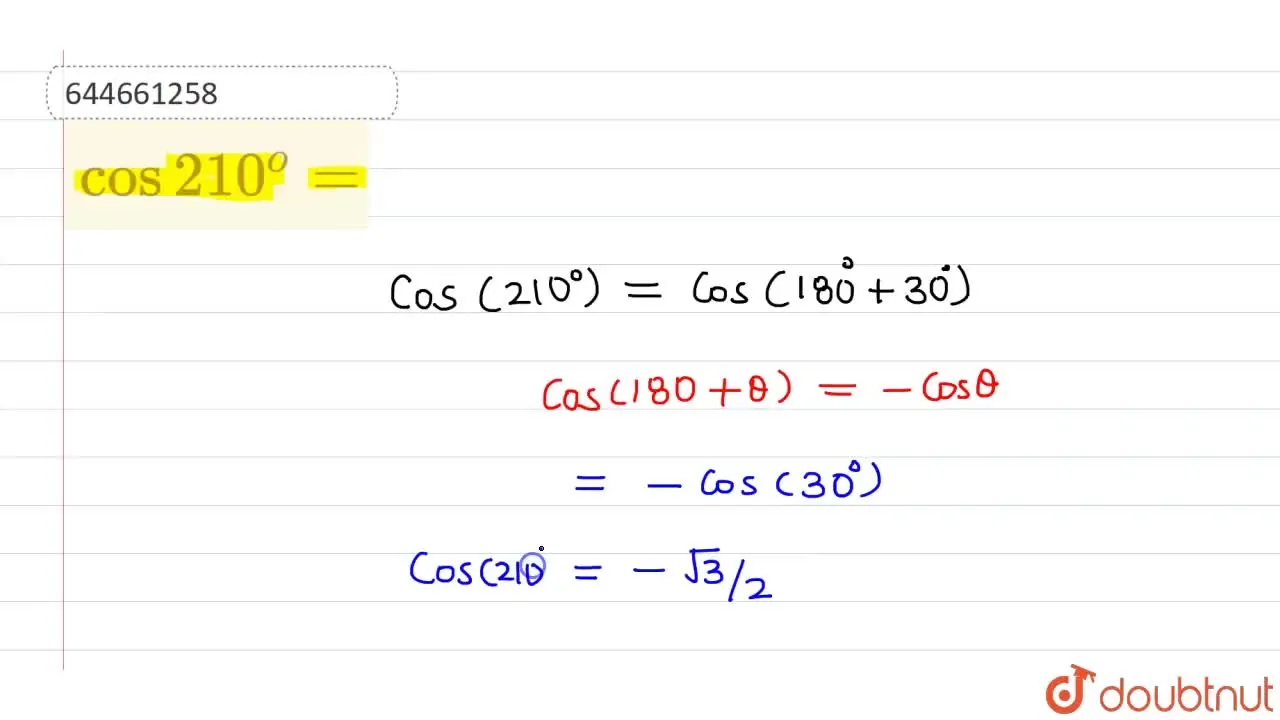 644661258
cos 210° =
Cos (210°) = Cos (180° + 30°)
Cos(180 + θ) = - Cosθ
= - Cos (30°)
Cos(210° = - √3/2
doubtnut